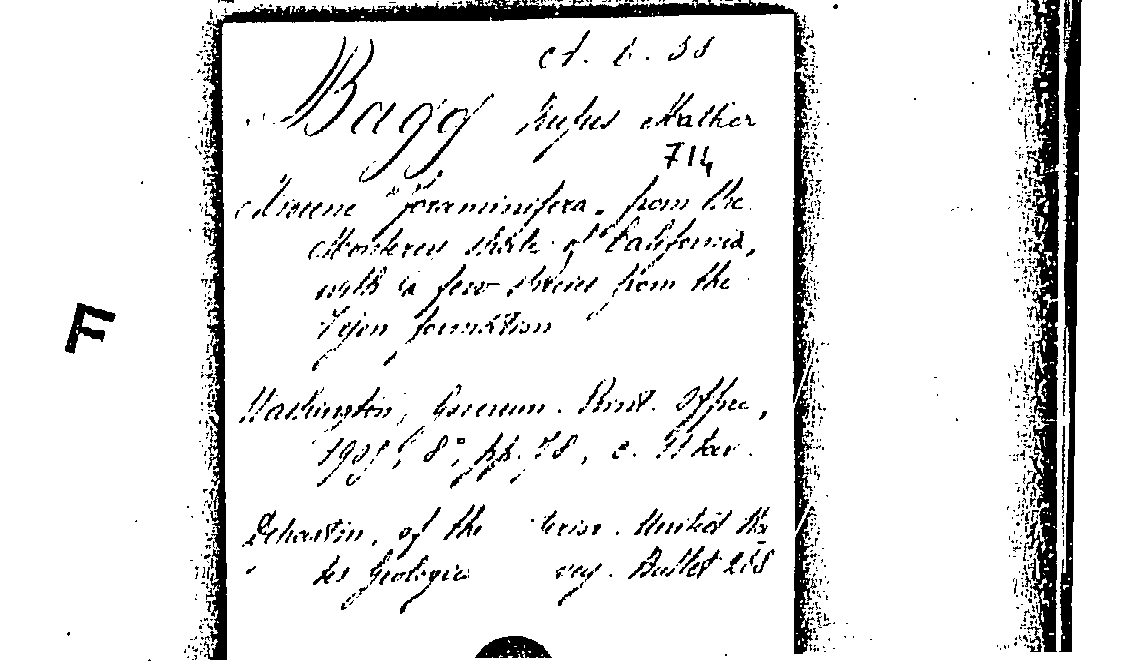 Bagg Rufus Mather
714
Miocene foraminifera, from the
Monterey shale of California,
with a few species from the
Tejon formation
F
Washington, Govern. Print. Office,
1905, 8°, pp. 78, c. 11 tav.
of the United Sta
tes Geologic vey. Bullet 268